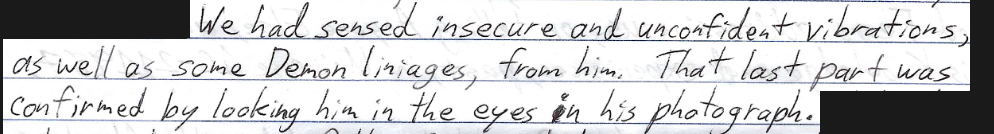 We had sensed insecure and unconfident vibrations,
as well as some Demon liniages, from him. That last part was
confirmed by looking him in the eyes in his photograph.